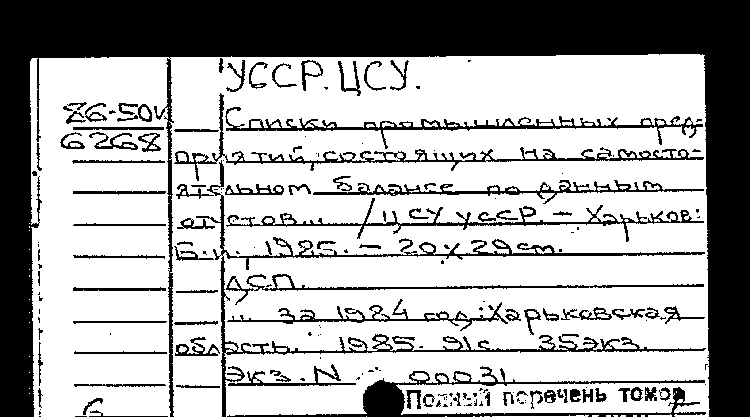 УССР. ЦСУ.
86-50и
6268
Списки промышленных пред-
приятий, состоящих на самосто-
ятельном балансе по данным
отчетов... / ЦСУ УССР. - Харьков:
Б.и., 1985. - 20 х 29 см.
ДСП.
... за 1984 год: Харьковская
область. 1985. 91 с. 35 экз.
Экз. N 00031.
6
Полный перечень томов